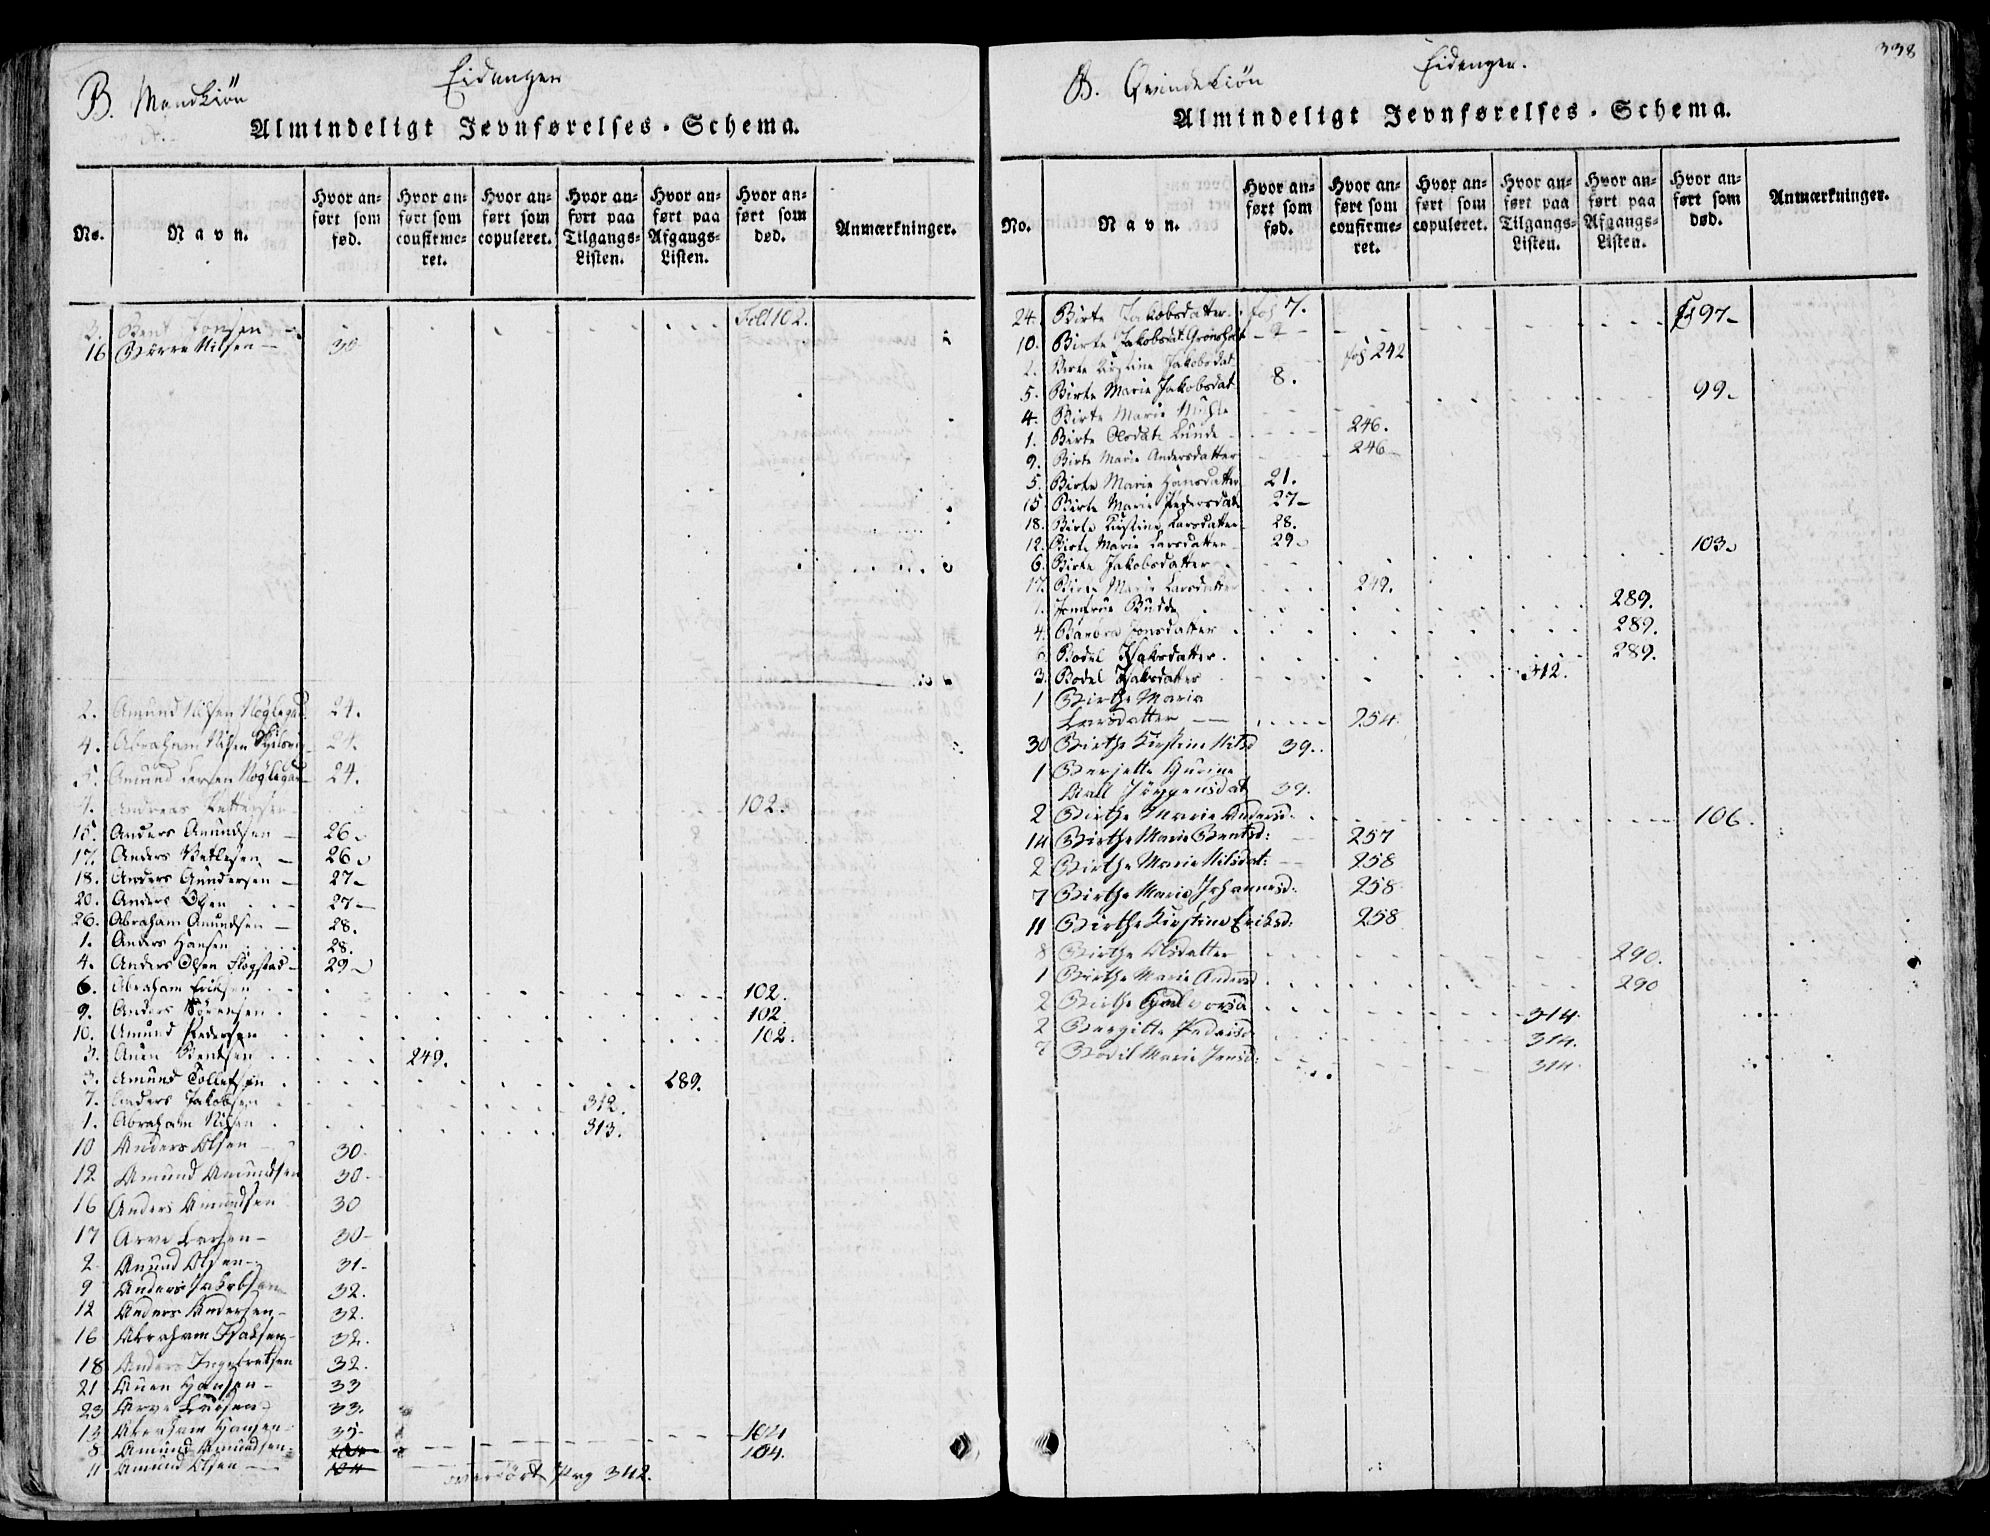 B. Mandkiön
Eidanger
Almindeligt Jevnførelses-Schema.
No.
Navn.
Hvor anført som fød.
Hvor anført som confirmeret.
Hvor anført som copuleret.
Hvor anført paa Tilgangs-Listen.
Hvor anført paa Afgangs-Listen.
Hvor anført som død.
Anmærkninger.
Bent Jonsen 102.
16 Börre Nilsen 30
2. Amund Nilsen 24.
4. Abraham Nilsen 24.
Amund Larsen 24.
Andreas Pettersen 102.
15. Anders Amundsen 26
17. Anders Vetlesen 26
18. Anders Gundersen 27
20. Anders Olsen 27
26. Abraham Amundsen 28.
1. Anders Hansen 28.
4. Anders Olsen Flogstad 29
6. Abraham Eriksen 102.
9. Anders Sörensen 102
10. Amund Pedersen 102.
3. Auen Bentsen 249.
3. Amund Tollefsen 289.
7. Anders Jakobsen 312.
1. Abraham Nilsen 313.
10 Anders Olsen 30.
12 Amund Amundsen 30.
16 Anders Amundsen 30
17 Arve Larsen 30
2 Amund Olsen 31.
9 Anders Jakobsen 32.
12 Anders Andersen 32.
16 Abraham Isaksen 32.
18 Anders Ingebretsen 32.
21 Auen Hansen 33
23 Arve Larsen 33.
13 Abraham Hansen 35. 104
8 Amund Amundsen 104.
11 Amund Olsen
overfört Pag 342.
338
B. Qvindekiön
Eidanger.
Almindeligt Jevnførelses-Schema.
No.
Navn.
Hvor anført som fød.
Hvor anført som confirmeret.
Hvor anført som copuleret.
Hvor anført paa Tilgangs-Listen.
Hvor anført paa Afgangs-Listen.
Hvor anført som død.
Anmærkninger.
24. Birte Jakobsdatter 7.
10. Birte Jakobsdat. 97
Birte Kirstine Jakobsdat. 242
5. Birte Marie Jakobsdat 8.
4. Birte Marie 99
1. Birte Olsdat. Lunde 246.
9. Birte Marie Andersdatter 246
5. Birte Marie Hansdatter 21.
15 Birte Marie Pedersdat 27
18. Birte Kirstine Larsdatter 28.
12. Birte Marie Larsdatter 29
6. Birte Jakobsdatter 103
17. Birte Marie Larsdatter 249.
1. Jomfrue Budde 289.
4. Barbra Jonsdatter 289.
Bodel Isaksdatter 289.
3. Bodel Isaksdatter 312.
1 Birthe Maria
Larsdatter 254.
30 Birthe Kirstine Nilsd 39.
1 Berjette Gurine
Mall Jörgensdat 39.
2 Birthe Marie Andersd. 106.
14 Birthe Marie Bentsd: 257
2 Birthe Marie Nilsdat: 258
7 Birthe Marie Johannesd: 258
11 Birthe Kirstine Eriksd: 258
8 Birthe Olsdatter 290.
1 Birthe Marie Andersd 290
2 Birthe Halvorsd 314
2 Bergitte Pedersd 314.
7 Bodil Marie Jensd: 314